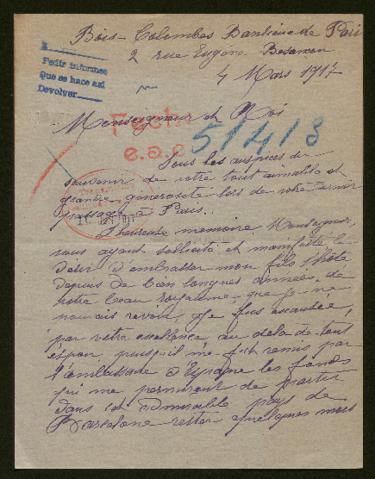 Bois-Colombes Banlieue de Paris
2 rue Eugène Besançon
4 Mars 1917
A
Pedir informes
Que se hace así
Devolver
Monseigneur et Roi
Fecha
e.a.c.
51413
Sous les auspices du
souvenir de votre tout aimable et
grande générosité lors de votre dernier
passage à Paris.
D'heureuse mémoire, Monseigneur,
vous ayant sollicité et manifesté le
désir d'embrasser mon fils, hôte
depuis de bien longues années, de
votre beau royaume, que je ne
pouvais revoir. Je fus exaucée,
par votre excellence au delà de tout
espoir, puisqu'il me fut remis par
l'ambassade d'Espagne les fonds
qui me permirent de partir
dans cet admirable pays de
Barcelone rester quelques mois